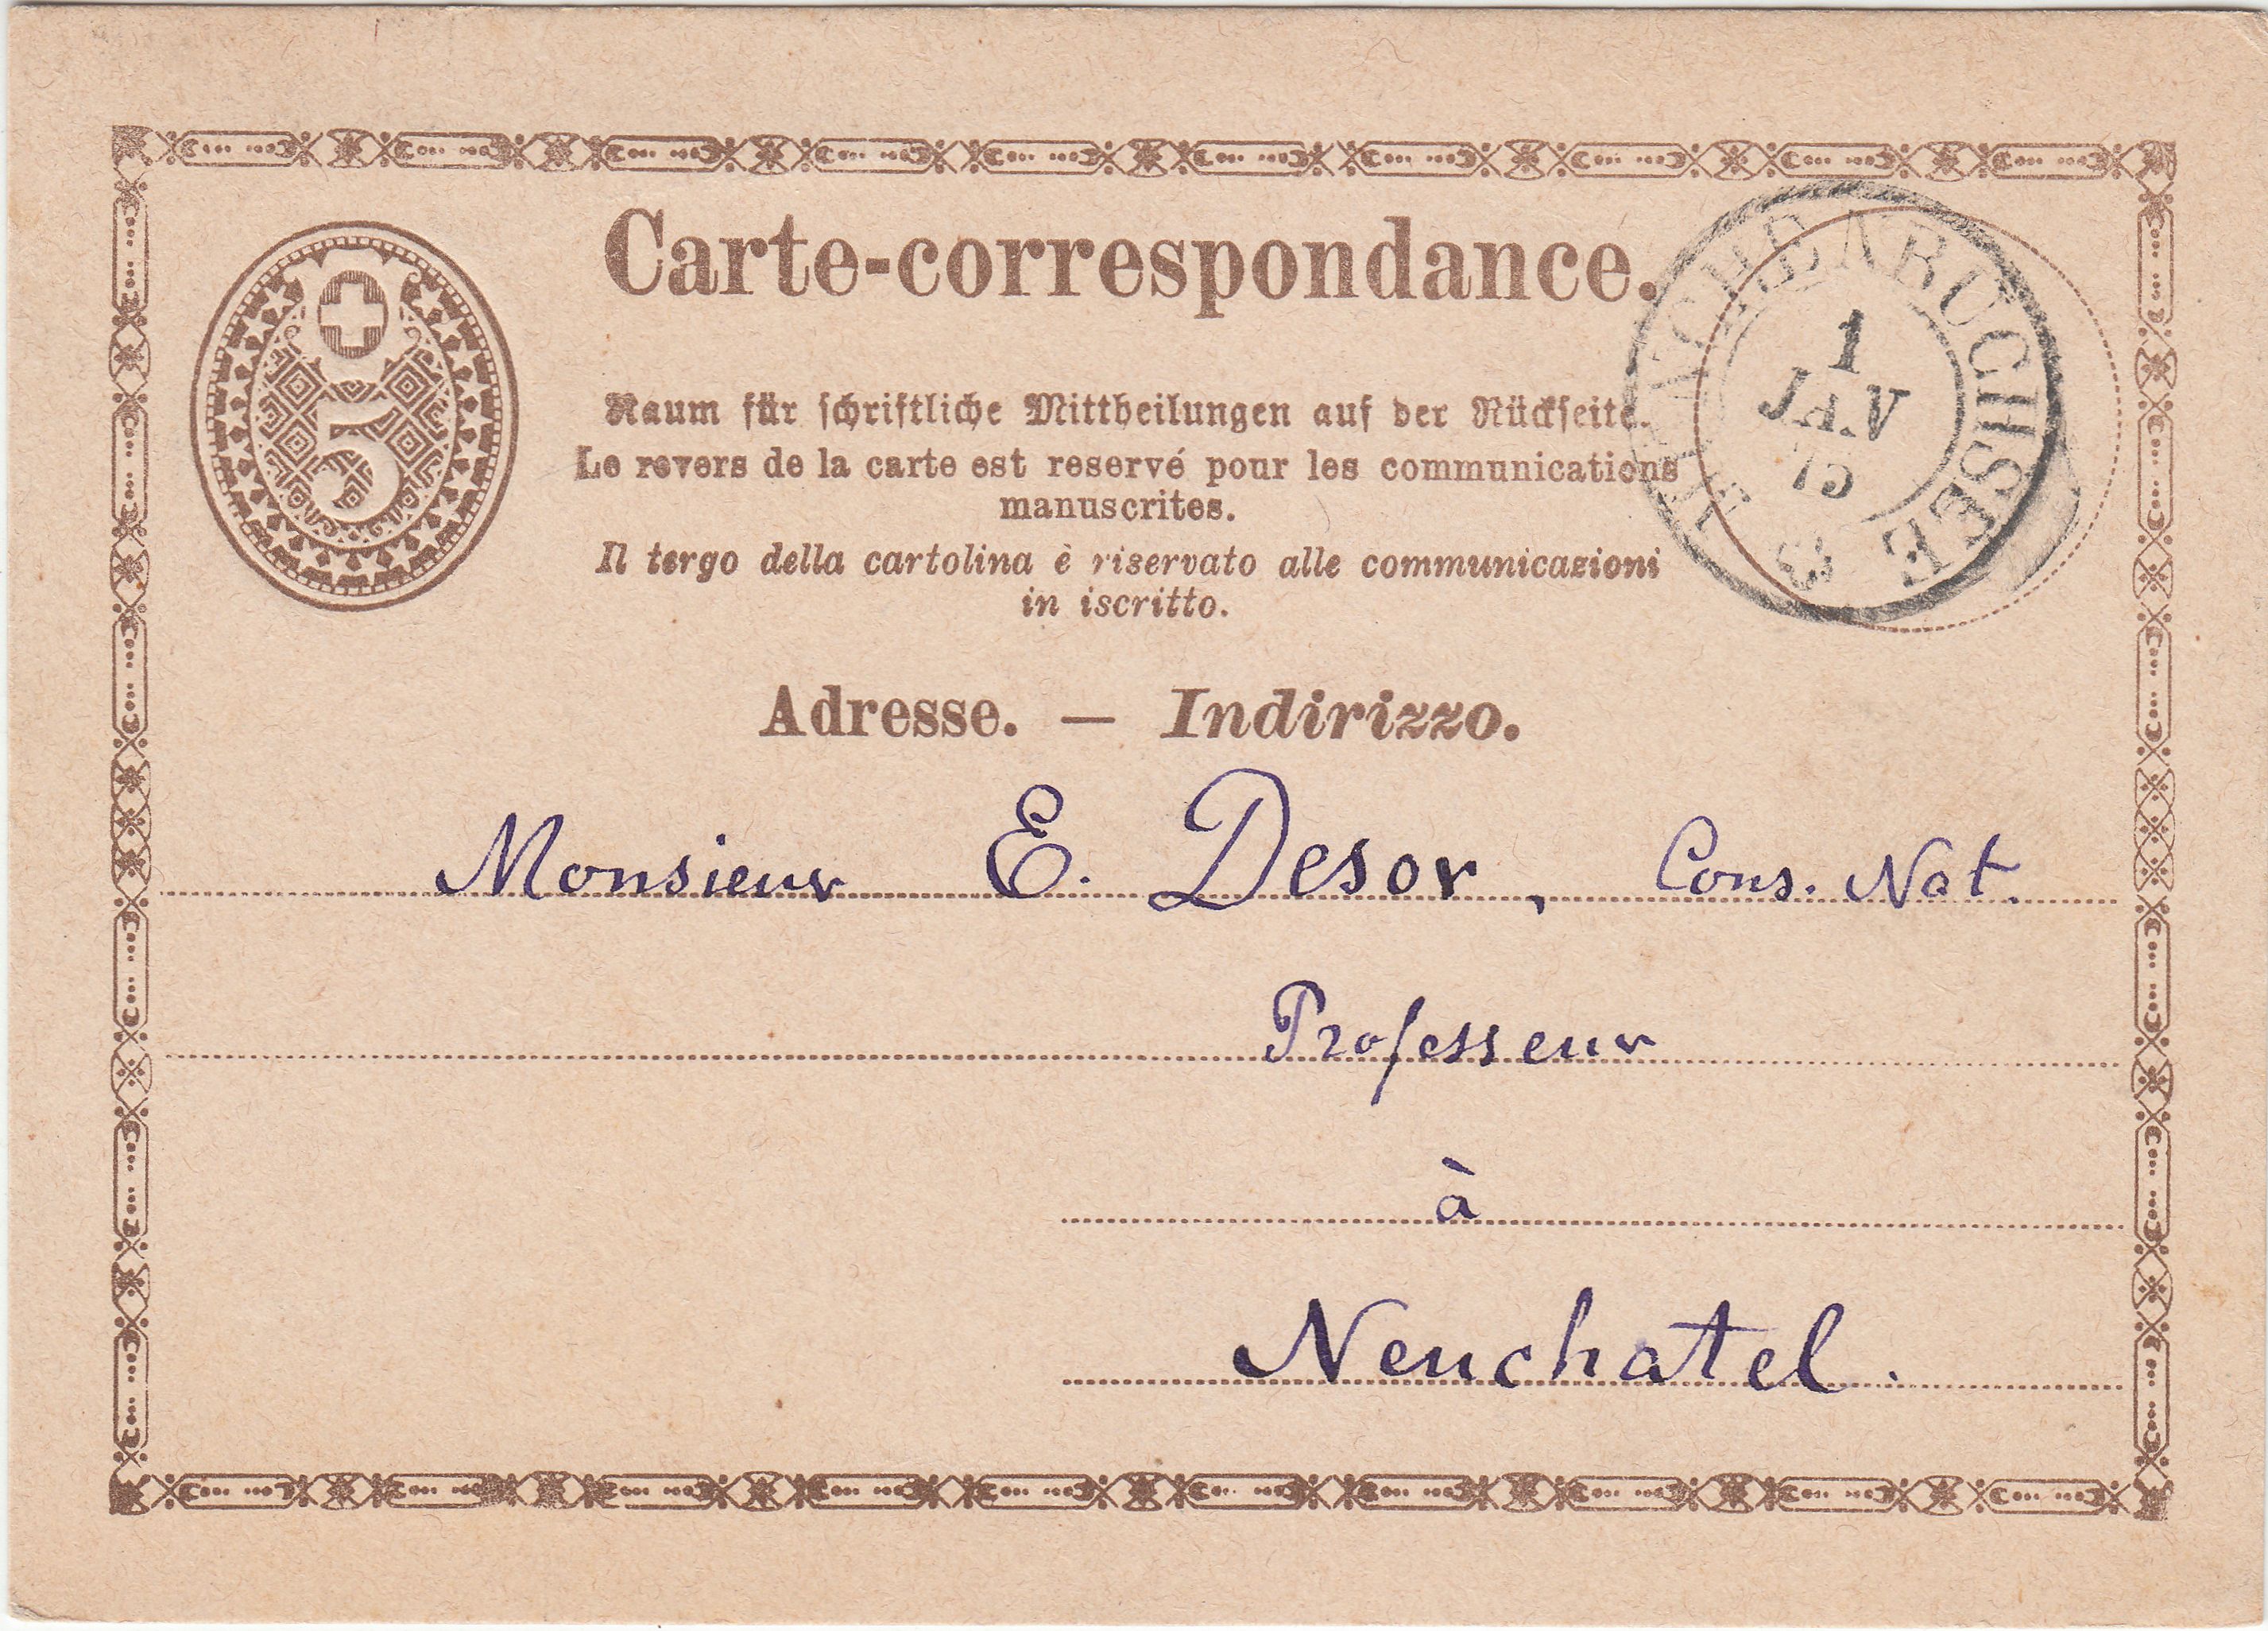 Carte-correspondance.
5
Raum für schriftliche Mittheilungen auf der Rückseite.
Le revers de la carte est reservé pour les communications
manuscrites.
Il tergo della cartolina è riservato alle communicazioni
in iscritto.
HERZOGENBUCHSEE
1
JAN
75
Adresse. — Indirizzo.
Monsieur E. Desor, Cons. Nat.
Professeur
à
Neuchatel.